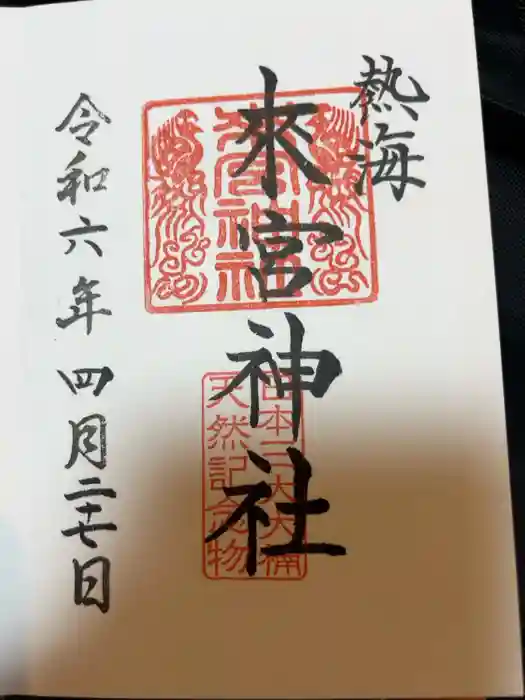 熱海
來宮神社
來宮神社
日本三大大楠
天然記念物
令和六年四月二十七日